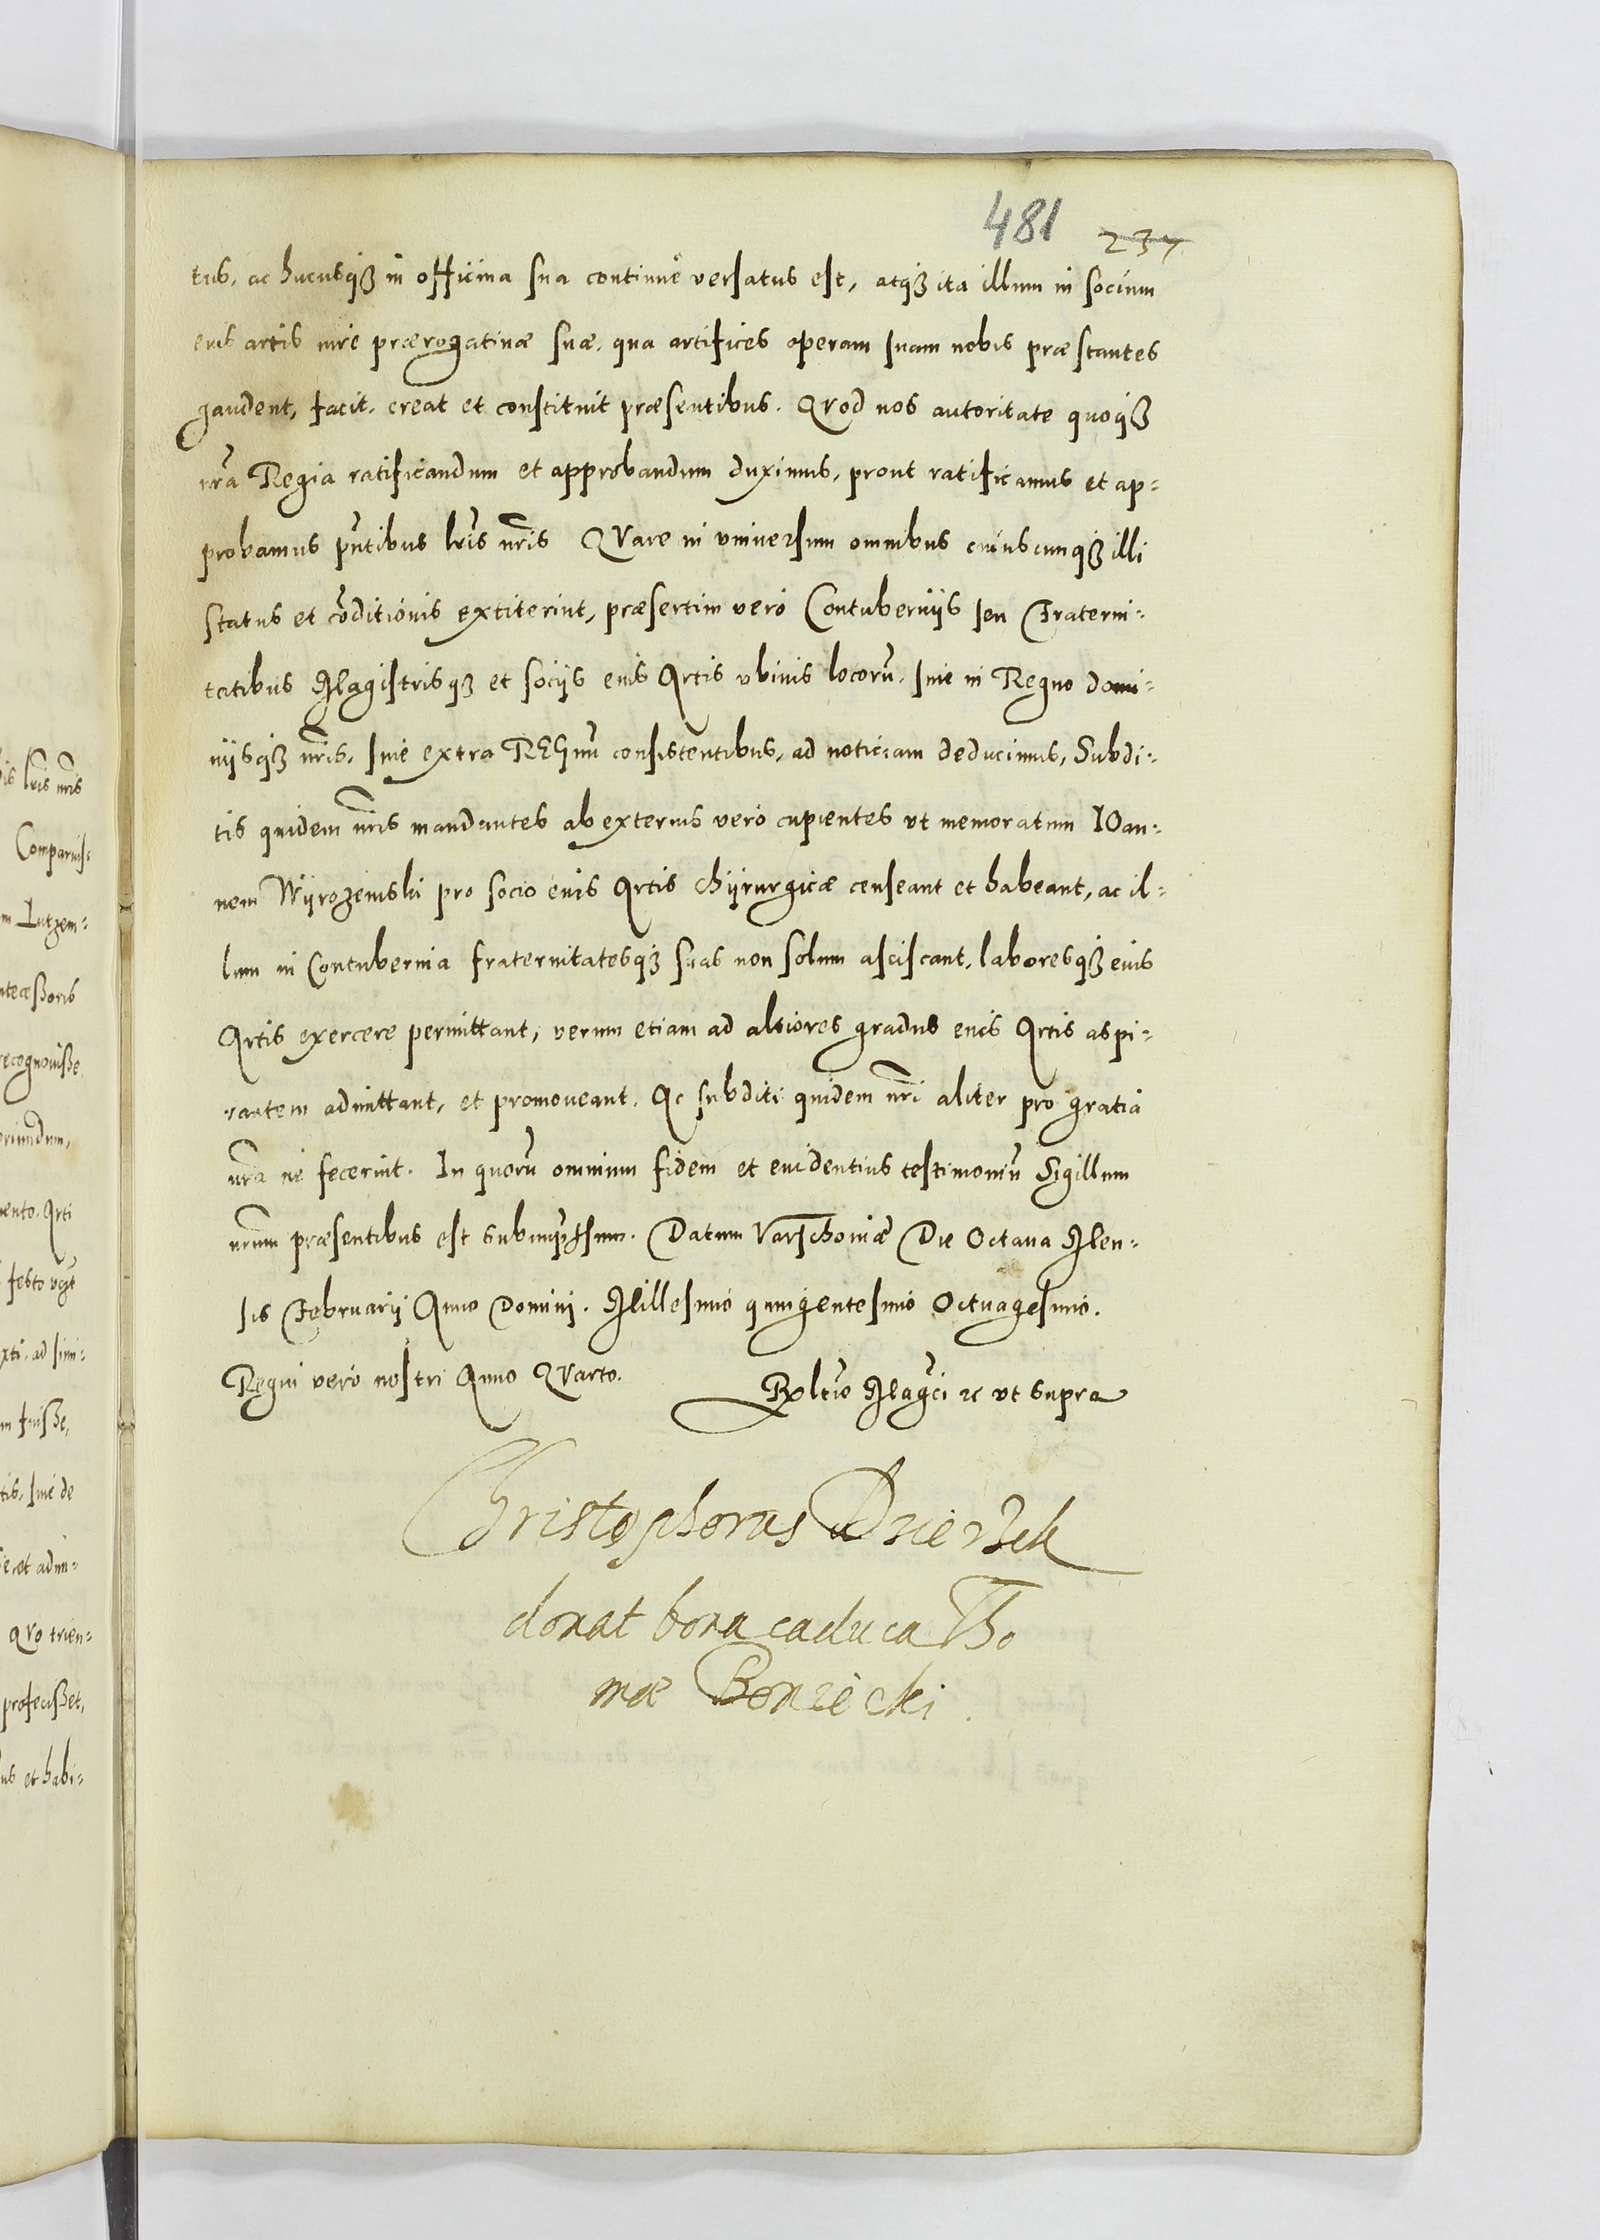 481 237
tus, ac hucusqꝫ in officina sua continue versatus est, atqꝫ ita illum in socium
eius artis iure prærogatiuæ suæ, qua artifices operam suam nobis præstantes
gaudent, facit, creat et constituit præsentibus. QVod nos autoritate quoqꝫ
nr̃a Regia ratificandum et approbandum duximus, prout ratificamus et ap-
probamus pñtibus lr̃is nr̃is QVare in vniuersum omnibus cuiuscunqꝫ illi
status et cõditionis extiterint, præsertim vero Contubernijs seu Fraterni-
tatibus Magistrisqꝫ et socijs eius Artis vbiuis locorũ, siue in Regno domi-
nijsqꝫ nr̃is, siue extra REGnũ consistentibus, ad noticiam deducimus, Subdi-
tis quidem nr̃is mandantes ab externis vero cupientes vt memoratum IOan-
nem Wyrozemski pro socio eius Artis chyrurgicæ censeant et habeant, ac il-
lum in Contubernia fraternitatesqꝫ suas non solum asciscant, laboresqꝫ eius
Artis exercere permittant, verum etiam ad altiores gradus eius Artis aspi-
rantem admittant, et promoueant. Ac subditi quidem nr̃i aliter pro gratia
nr̃a ne fecerint. In quorũ omnium fidem et euidentius testimoniũ Sigillum
nr̃um præsentibus est subimpressum. Datum Varschouiæ Die Octaua Men-
sis Februarij Anno Domini. Millesimo quingentesimo Octuagesimo.
Regni vero nostri Anno QVarto.
Reltio Magci ꝛc vt supra
Christophorus Dzierzek
donat bona caduca Tho
mæ Boniecki.